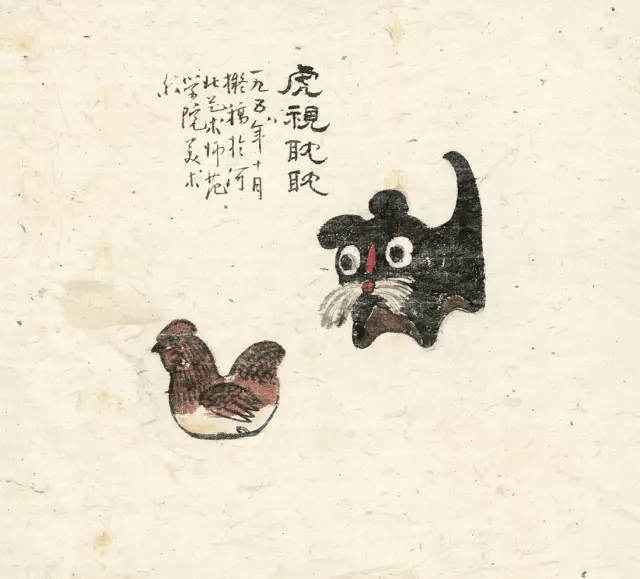 虎視耽耽
一九五年十月
擬稿於河
北艺术师范
学院美术
系